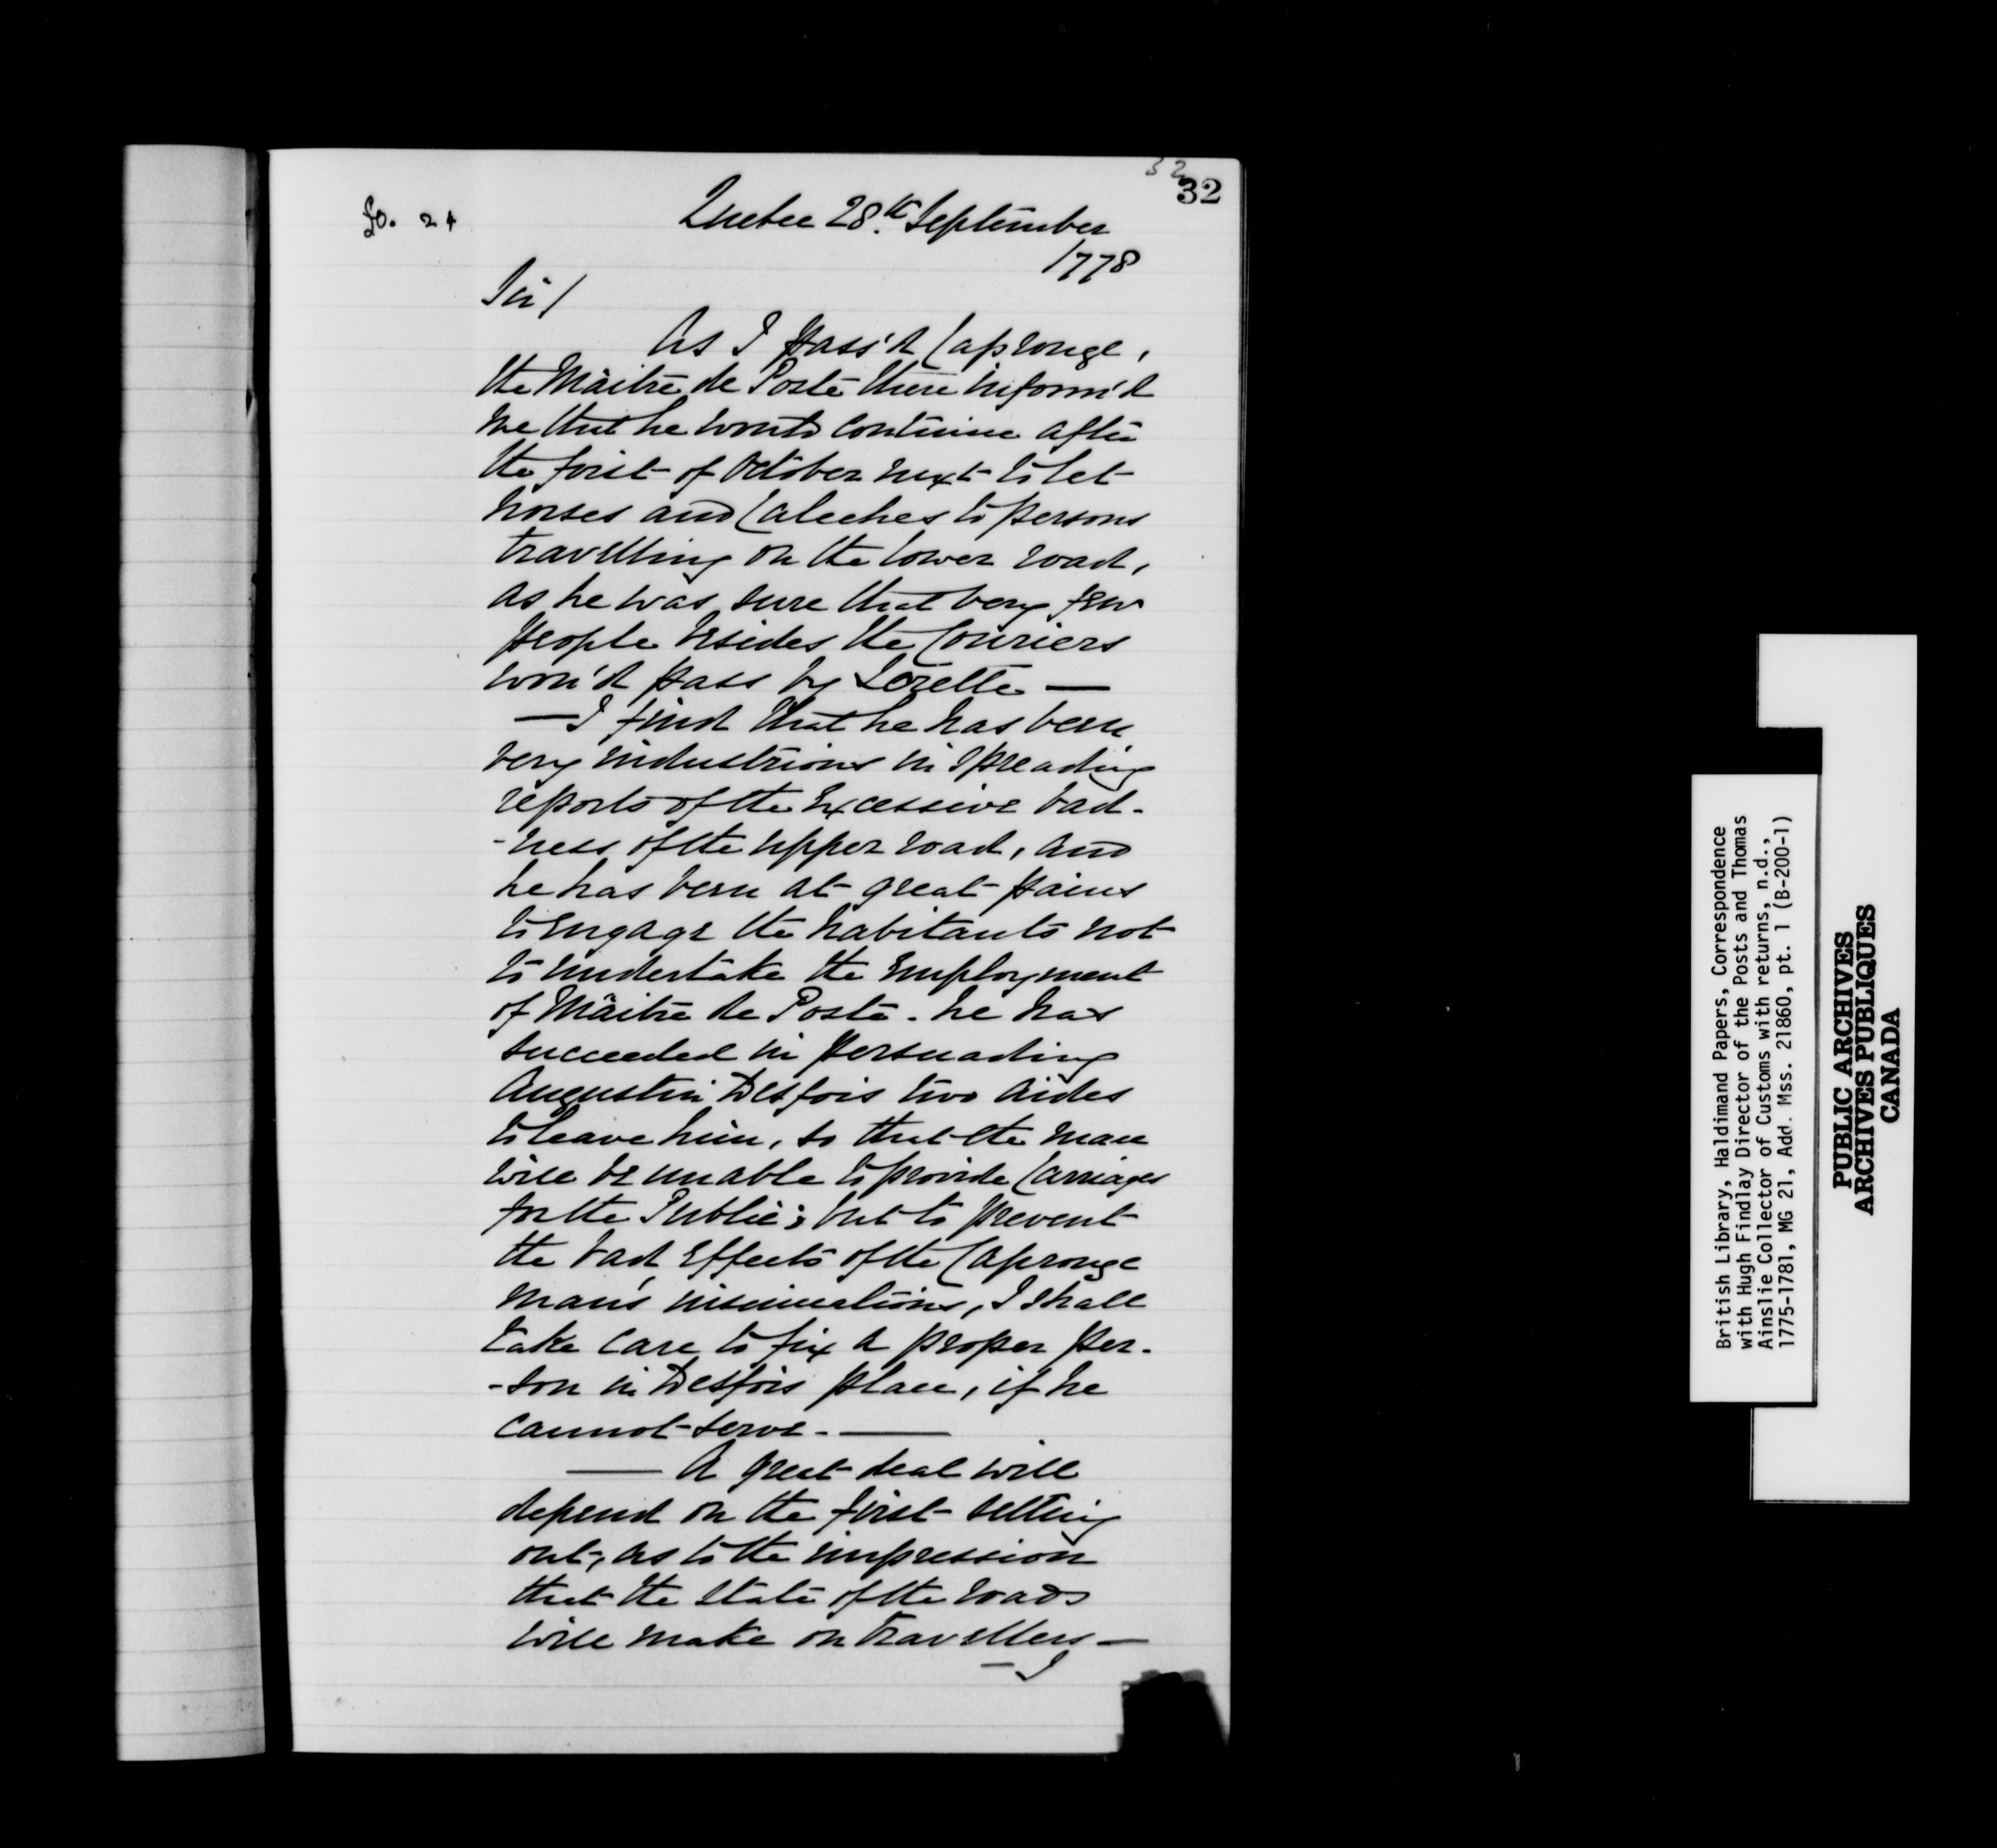 32
32
fo. 24
Quebec 28.th September
1778
Sir/
As I pass'd Caprouge,
the Maître de Poste there inform'd
me that he would continue after
the first of October next to let
horses and Caleches to persons
travelling on the lower road,
as he was sure that very few
people besides the Couriers
wou'd pass by Lorette —
— I find that he has been
very industrious in spreading
reports of the excessive bad-
-ness of the upper road, and
he has been at great pains
to engage the habitants not
to undertake the employment
of Maître de Poste. he has
succeeded in persuading
Augustin Desfois two aides
to leave him, so that the man
will be unable to provide Carriages
for the Public; but to prevent
the bad effects of the Caprouge
man's insinuations, I shall
take care to fix a proper per-
-son in Desfois place, if he
cannot serve. —
— A great deal will
depend on the first setting
out, as to the impression
that the state of the roads
will make on travellers —
— I
British Library, Haldimand Papers, Correspondence
with Hugh Findlay Director of the Posts and Thomas
Ainslie Collector of Customs with returns, n.d.,
1775-1781, MG 21, Add. Mss. 21860, pt. 1 (B-200-1)
PUBLIC ARCHIVES
ARCHIVES PUBLIQUES
CANADA